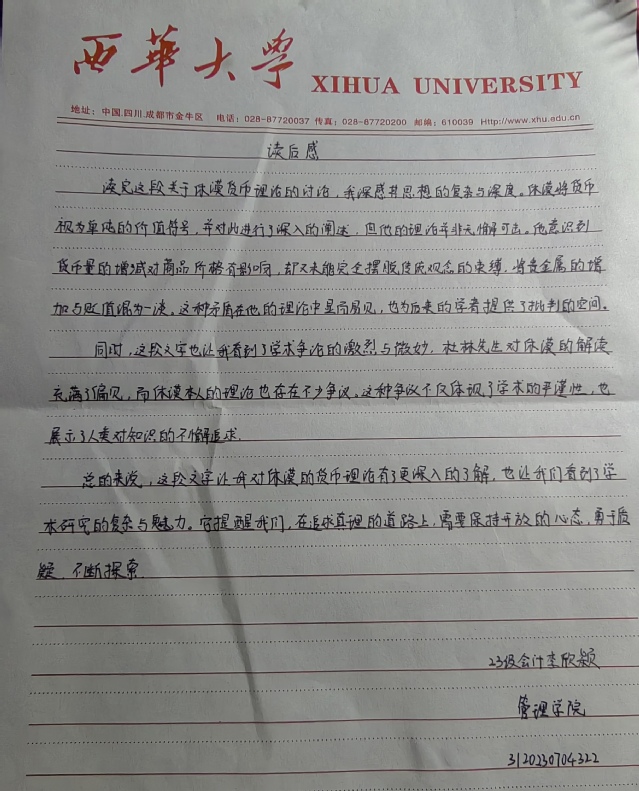 西華大學 XIHUA UNIVERSITY
地址：中国.四川.成都市金牛区 电话：028-87720037 传真：028-87720200 邮编：610039 Http://www.xhu.edu.cn
读后感
读完这段关于休谟货币理论的讨论，我深感其思想的复杂与深度。休谟将货币
视为单纯的价值符号，并对此进行了深入的阐述，但他的理论并非无懈可击。他意识到
货币量的增减对商品价格有影响，却又未能完全摆脱传统观念的束缚，将贵金属的增
加与贬值混为一谈。这种矛盾在他的理论中显而易见，也为后来的学者提供了批判的空间。
同时，这段文字也让我看到了学术争论的激烈与微妙，杜林先生对休谟的解读
充满了偏见，而休谟本人的理论也存在不少争议。这种争议不仅体现了学术的严谨性，也
展示了人类对知识的不懈追求。
总的来说，这段文字让我对休谟的货币理论有了更深入的了解，也让我们看到了学
术研究的复杂与魅力。它提醒我们，在追求真理的道路上，需要保持开放的心态，勇于质
疑、不断探索。
23级会计李欣颖
管理学院
3120230704322